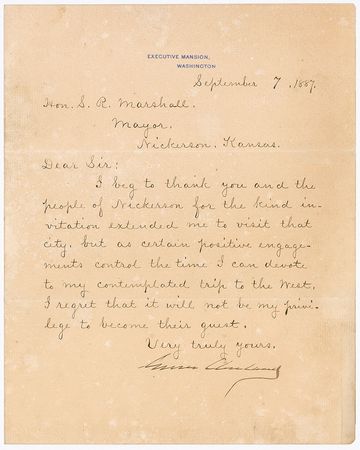 EXECUTIVE MANSION,
WASHINGTON
September 7, 1887.
Hon. S. R. Marshall.
Mayor.
Nickerson, Kansas.
Dear Sir:
I beg to thank you and the
people of Nickerson for the kind in-
vitation extended me to visit that
city, but as certain positive engage-
ments control the time I can devote
to my contemplated trip to the West,
I regret that it will not be my privi-
lege to become their guest.
Very truly yours.
Grover Cleveland